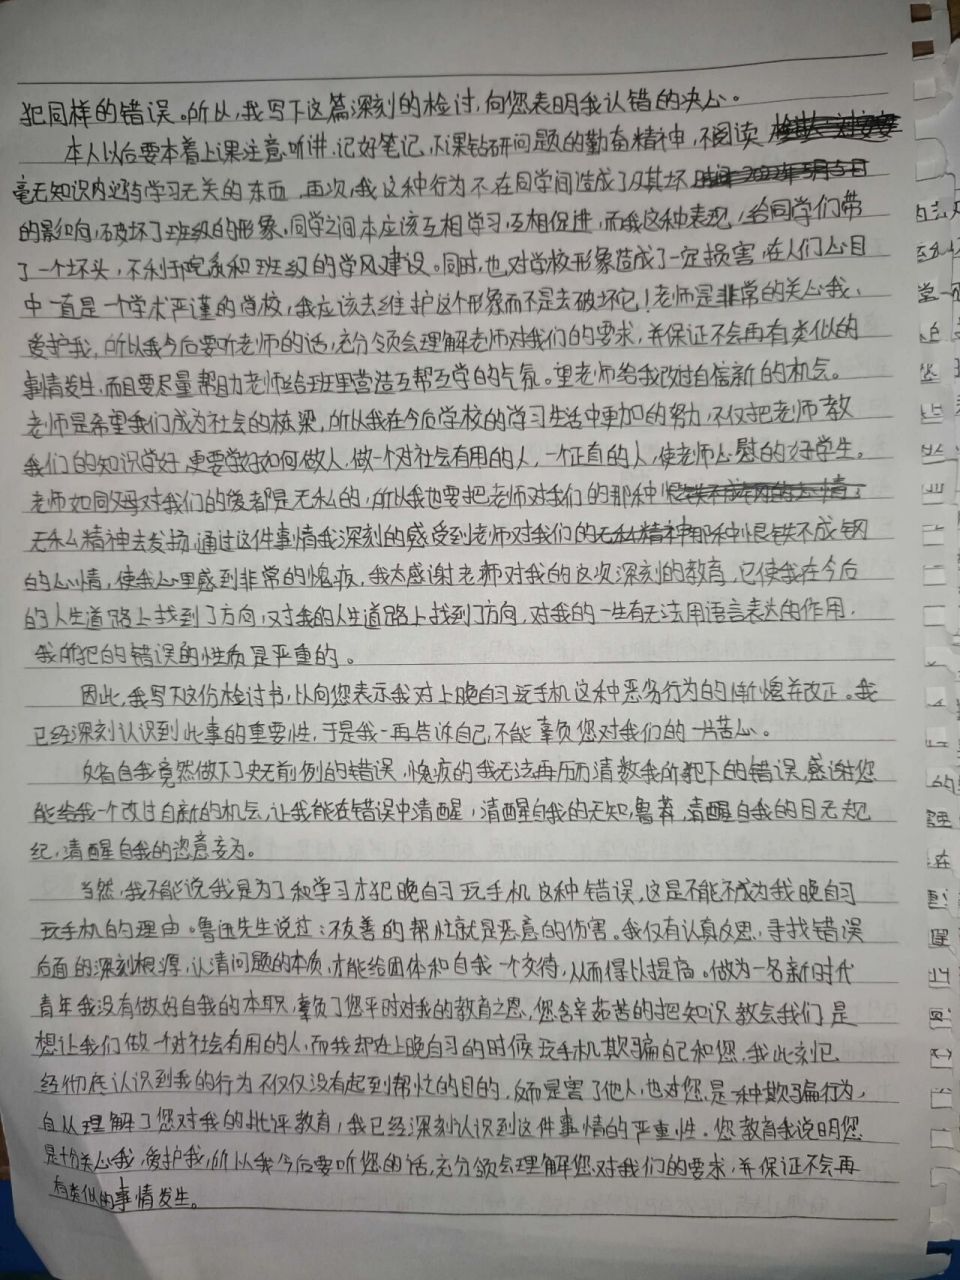 犯同样的错误。所以,我写下这篇深刻的检讨,向您表明我认错的决心。
本人以后要本着上课注意听讲,记好笔记,下课钻研问题的勤奋精神,不阅读
毫无知识内迈与学习无关的东西,再次,我这种行为不在同学间造成了及其坏
的影响,破坏了班级的形象,同学之间本应该互相学习,互相促进,而我这种表现,给同学们带
了一个坏头,不利于院系和班级的学风建设。同时,也对学校形象造成了一定损害,在人们心目
中一直是一个学术严谨的学校,我应该去维护这个形象而不是去破坏它!老师是非常的关心我、
爱护我,所以我今后要听老师的话,充分领会理解老师对我们的要求,并保证不会再有类似的
事情发生,而且要尽量帮助老师给班里营造互帮互学的气氛。望老师给我改过自信新的机会。
老师是希望我们成为社会的栋梁,所以我在今后学校的学习生活中更加的努力,不仅把老师教
我们的知识学好,更要学好如何做人,做一个对社会有用的人,一个正直的人,使老师心慰的好学生。
老师如同父母对我们的爱都是无私的,所以我也要把老师对我们的那种
无私精神去发扬,通过这件事情我深刻的感受到老师对我们的那种恨铁不成钢
的心情,使我心里感到非常的愧疚,我太感谢老师对我的这次深刻的教育,它使我在今后
的人生道路上找到了方向,对我的人生道路上找到了方向,对我的一生有无法用语言表达的作用.
我所犯的错误的性质是严重的。
因此,我写下这份检讨书,以向您表示我对上晚自习玩手机这种恶劣行为的惭愧并改正。我
已经深刻认识到此事的重要性,于是我一再告诉自己,不能辜负您对我们的一片苦心。
自我竟然做下了史无前例的错误,愧疚的我无法再历历清数我所犯下的错误,感谢您
能给我一个改过自新的机会,让我能在错误中清醒,清醒自我的无知,鲁莽,清醒自我的目无纪
纪,清醒自我的恣意妄为。
当然,我不能说我是为了和学习才犯晚自习玩手机这种错误,这是不能不成为我晚自习
玩手机的理由。鲁迅先生说过:不友善的帮忙就是恶意的伤害。我仅有认真反思,寻找错误
后面的深刻根源,认清问题的本质,才能给团体和自我一个交待,从而得以提高。做为一名新时代
青年我没有做好自我的本职,辜负了您平时对我的教育之恩,您含辛茹苦的把知识教会我们是
想让我们做一个对社会有用的人,而我却在上晚自习的时候玩手机欺骗自己和您,我此刻已
经彻底认识到我的行为不仅仅没有起到帮忙的目的,反而是害了他人,也对您是一种欺骗行为,
自从理解了您对我的批评教育,我已经深刻认识到这件事情的严重性。您教育我说明您
是十分关心我,爱护我,所以我今后要听您的话,充分领会理解您对我们的要求,并保证不会再
有类似的事情发生。